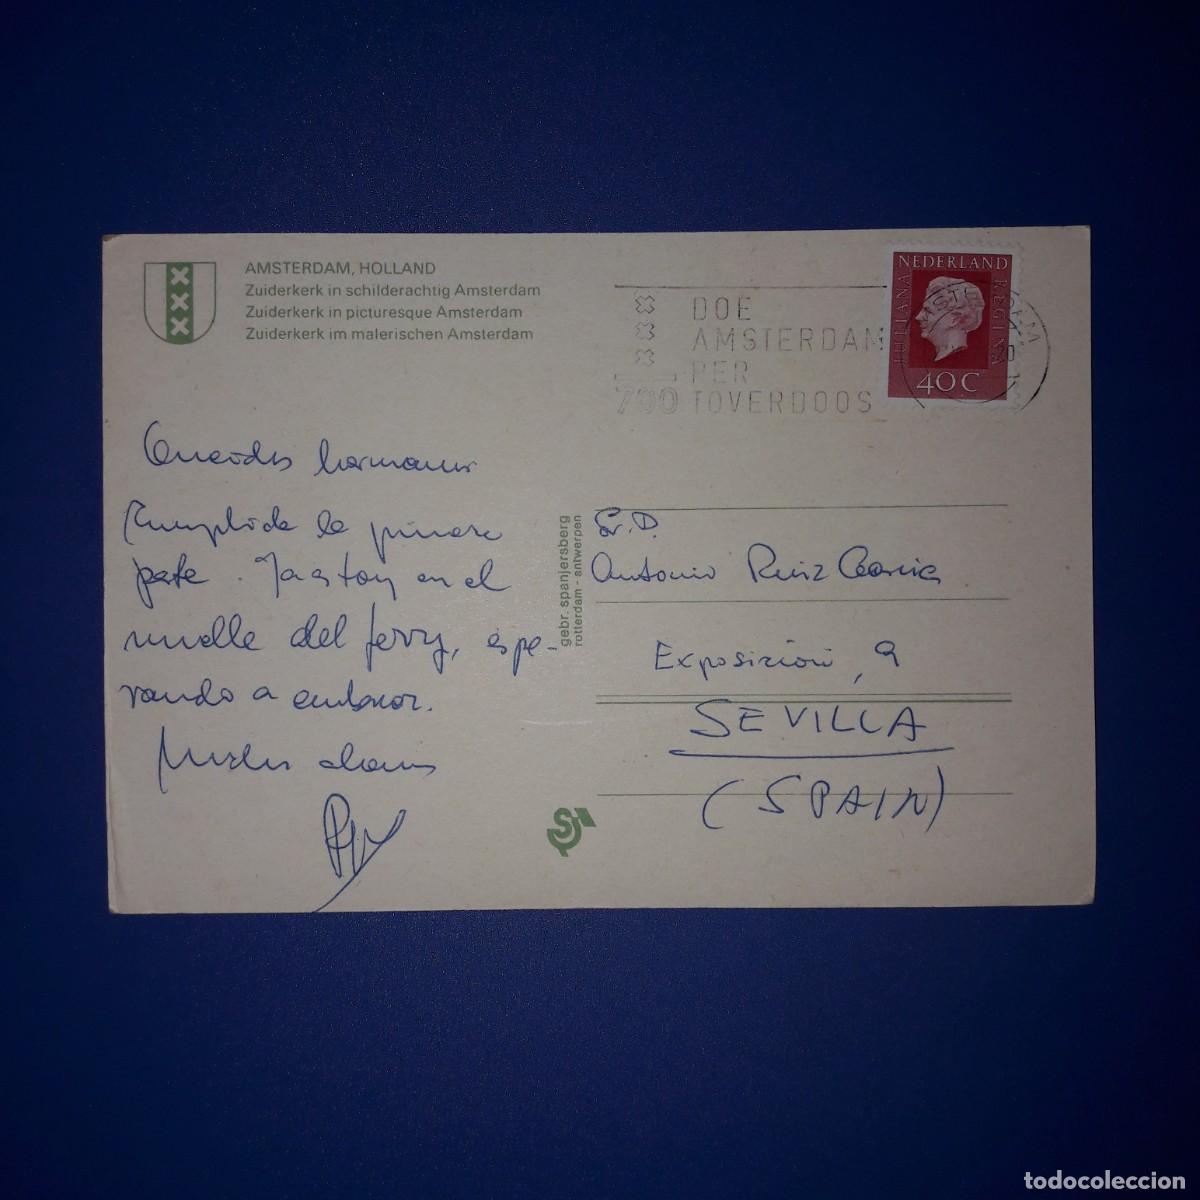 AMSTERDAM, HOLLAND
Zuiderkerk in schilderachtig Amsterdam
Zuiderkerk in picturesque Amsterdam
Zuiderkerk im malerischen Amsterdam
DOE
AMSTERDAM
PER
700 TOVERDOOS
NEDERLAND
JULIANA
REGINA
40C
20
Queridos hermanos
Cumplida la primera
parte. Ya estoy en el
muelle del ferry, espe-
rando a embarcar.
Muchos abrazos
gebr. spanjersberg
rotterdam - antwerpen
Sr. D.
Antonio Ruiz Garcia
Exposición, 9
SEVILLA
(SPAIN)
todocoleccion